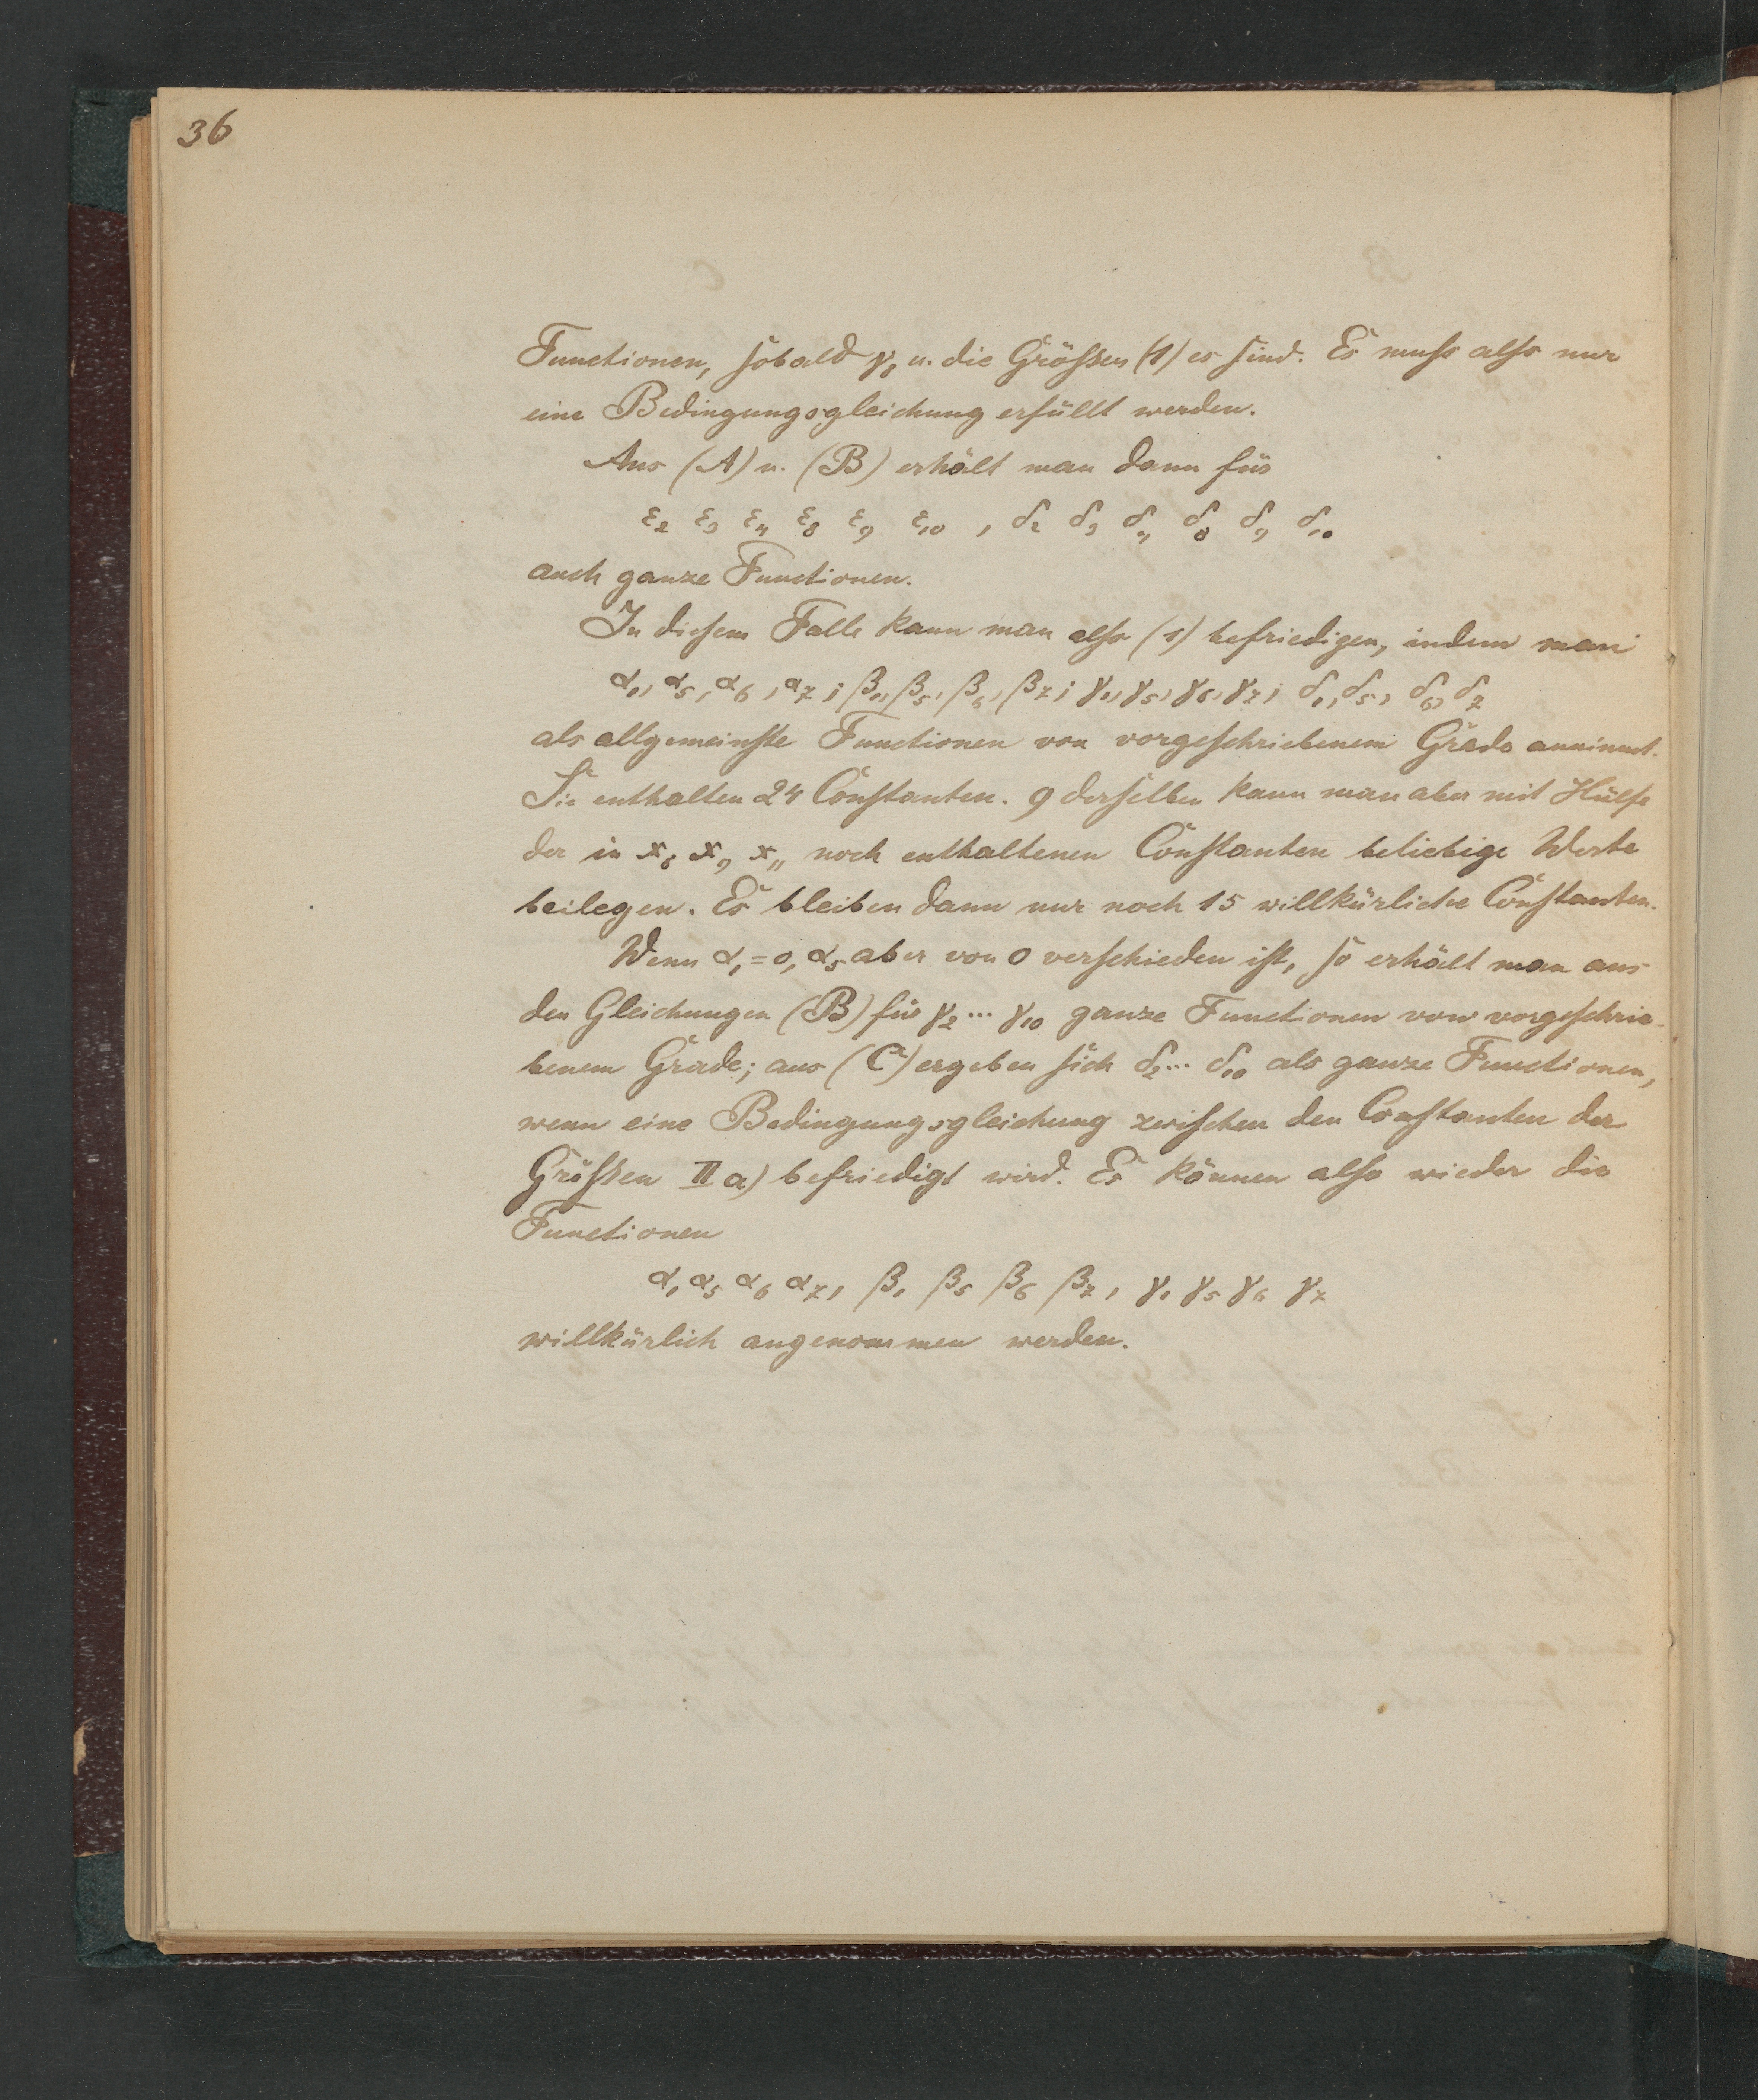 36
Functionen, sobald γ₈ u. die Grössen (1) es sind. Es muss also nur
eine Bedingungsgleichung erfüllt werden.
Aus (A) u. (B) erhält man dann für
ε₂ ε₃ ε₄ ε₈ ε₉ ε₁₀ , δ₂ δ₃ δ₄ δ₈ δ₉ δ₁₀
auch ganze Functionen.
In diesem Falle kann man also (1) befriedigen, indem man
α₁, α₅, α₆, α₇; β₁, β₅, β₆, β₇; γ₁, γ₅, γ₆, γ₇; δ₁, δ₅, δ₆, δ₇
als allgemeinste Functionen von vorgeschriebenem Grade annimmt.
Sie enthalten 24 Constanten. 9 derselben kann man aber mit Hülfe
der in x₈ x₉ x₁₁ noch enthaltenen Constanten beliebige Werte
beilegen. Es bleiben dann nur noch 15 willkürliche Constanten.
Wenn α₁=0, α₅ aber von 0 verschieden ist, so erhält man aus
den Gleichungen (B) für γ₂ ... γ₁₀ ganze Functionen von vorgeschrie-
benem Grade; aus (C) ergeben sich δ₂ ... δ₁₀ als ganze Functionen,
wenn eine Bedingungsgleichung zwischen den Constanten der
Grössen II a) befriedigt wird. Es können also wieder die
Functionen
α₁ α₅ α₆ α₇, β₁ β₅ β₆ β₇, γ₁ γ₅ γ₆ γ₇
willkürlich angenommen werden.